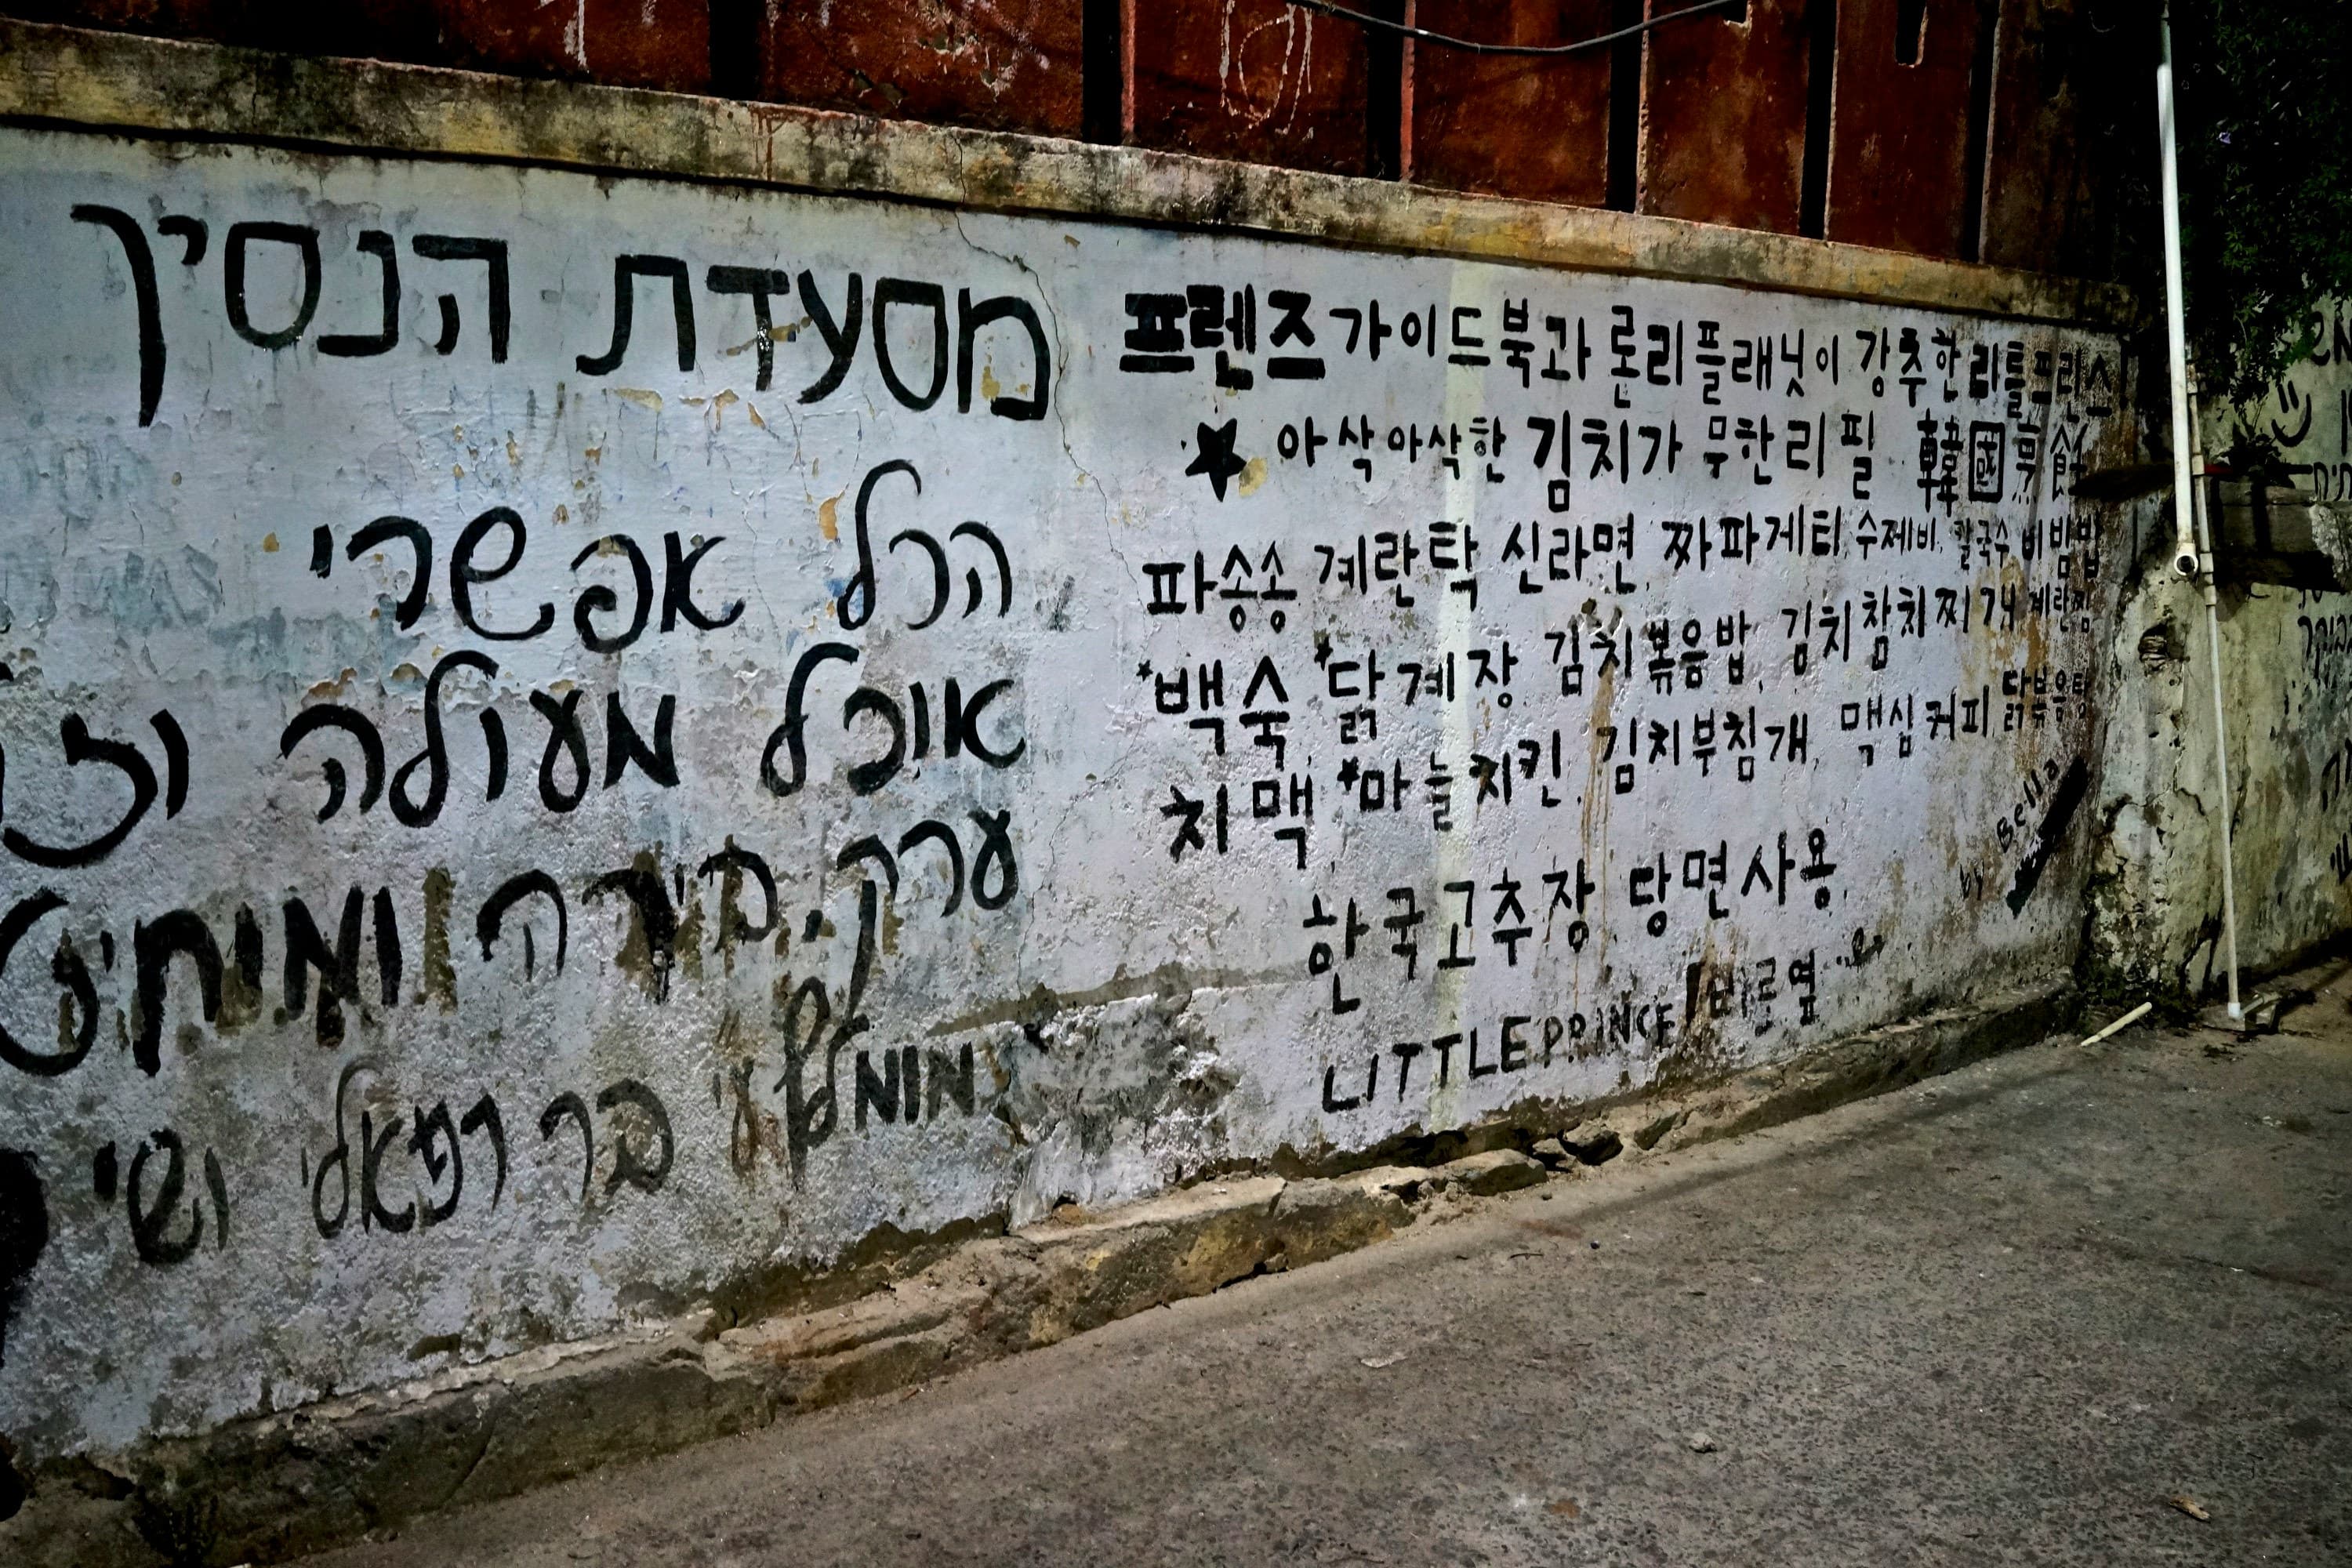 מסעדת הנסיך
הכל אפשרי
אוכל מעולה
ערק, בירה
מומלץ ע"י בר רפאלי
프렌즈 가이드북과 론리플래닛이 강추한 리틀프린스
★ 아삭아삭한 김치가 무한리필 韓國
파송송 계란탁 신라면, 짜파게티, 수제비, 칼국수, 비빔밥
*백숙 *닭계장 김치볶음밥, 김치참치찌개 계란찜
치맥 *마늘치킨, 김치부침개, 맥심커피 닭볶음탕
한국고추장 당면사용.
LITTLE PRINCE / 바로옆
by Bella